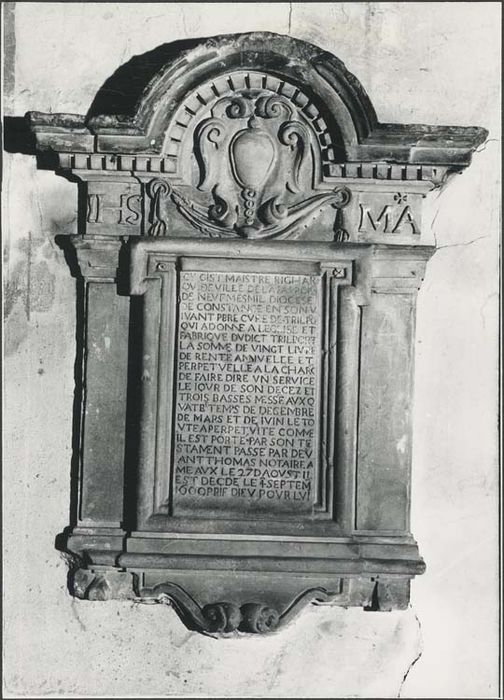 IHS MA
CY GIST MAISTRE RICHAR
DE NEVFMESNIL DIOCESE
DE CONSTANCE EN SON V
IVANT PBRE CVRE DE TRILPO
QVI A DONNE A LEGLISE ET
FABRIQVE DVDICT TRILPORT
LA SOMME DE VINGT LIVRE
DE RENTE ANNVELLE ET
PERPETVELLE A LA CHARG
DE FAIRE DIRE VN SERVICE
LE IOVR DE SON DECEZ ET
TROIS BASSES MESSE AVX Q
VATR TEMPS DE DECEMBRE
DE MARS ET DE IVIN LE TO
VTE A PERPET VITE COMME
IL EST PORTE PAR SON TE
STAMENT PASSE PAR DEV
ANT THOMAS NOTAIRE A
MEAVX LE 27 DAOVST IL
EST DECDE LE 4 SEPTEM
PRIE DIEV POVR LVI